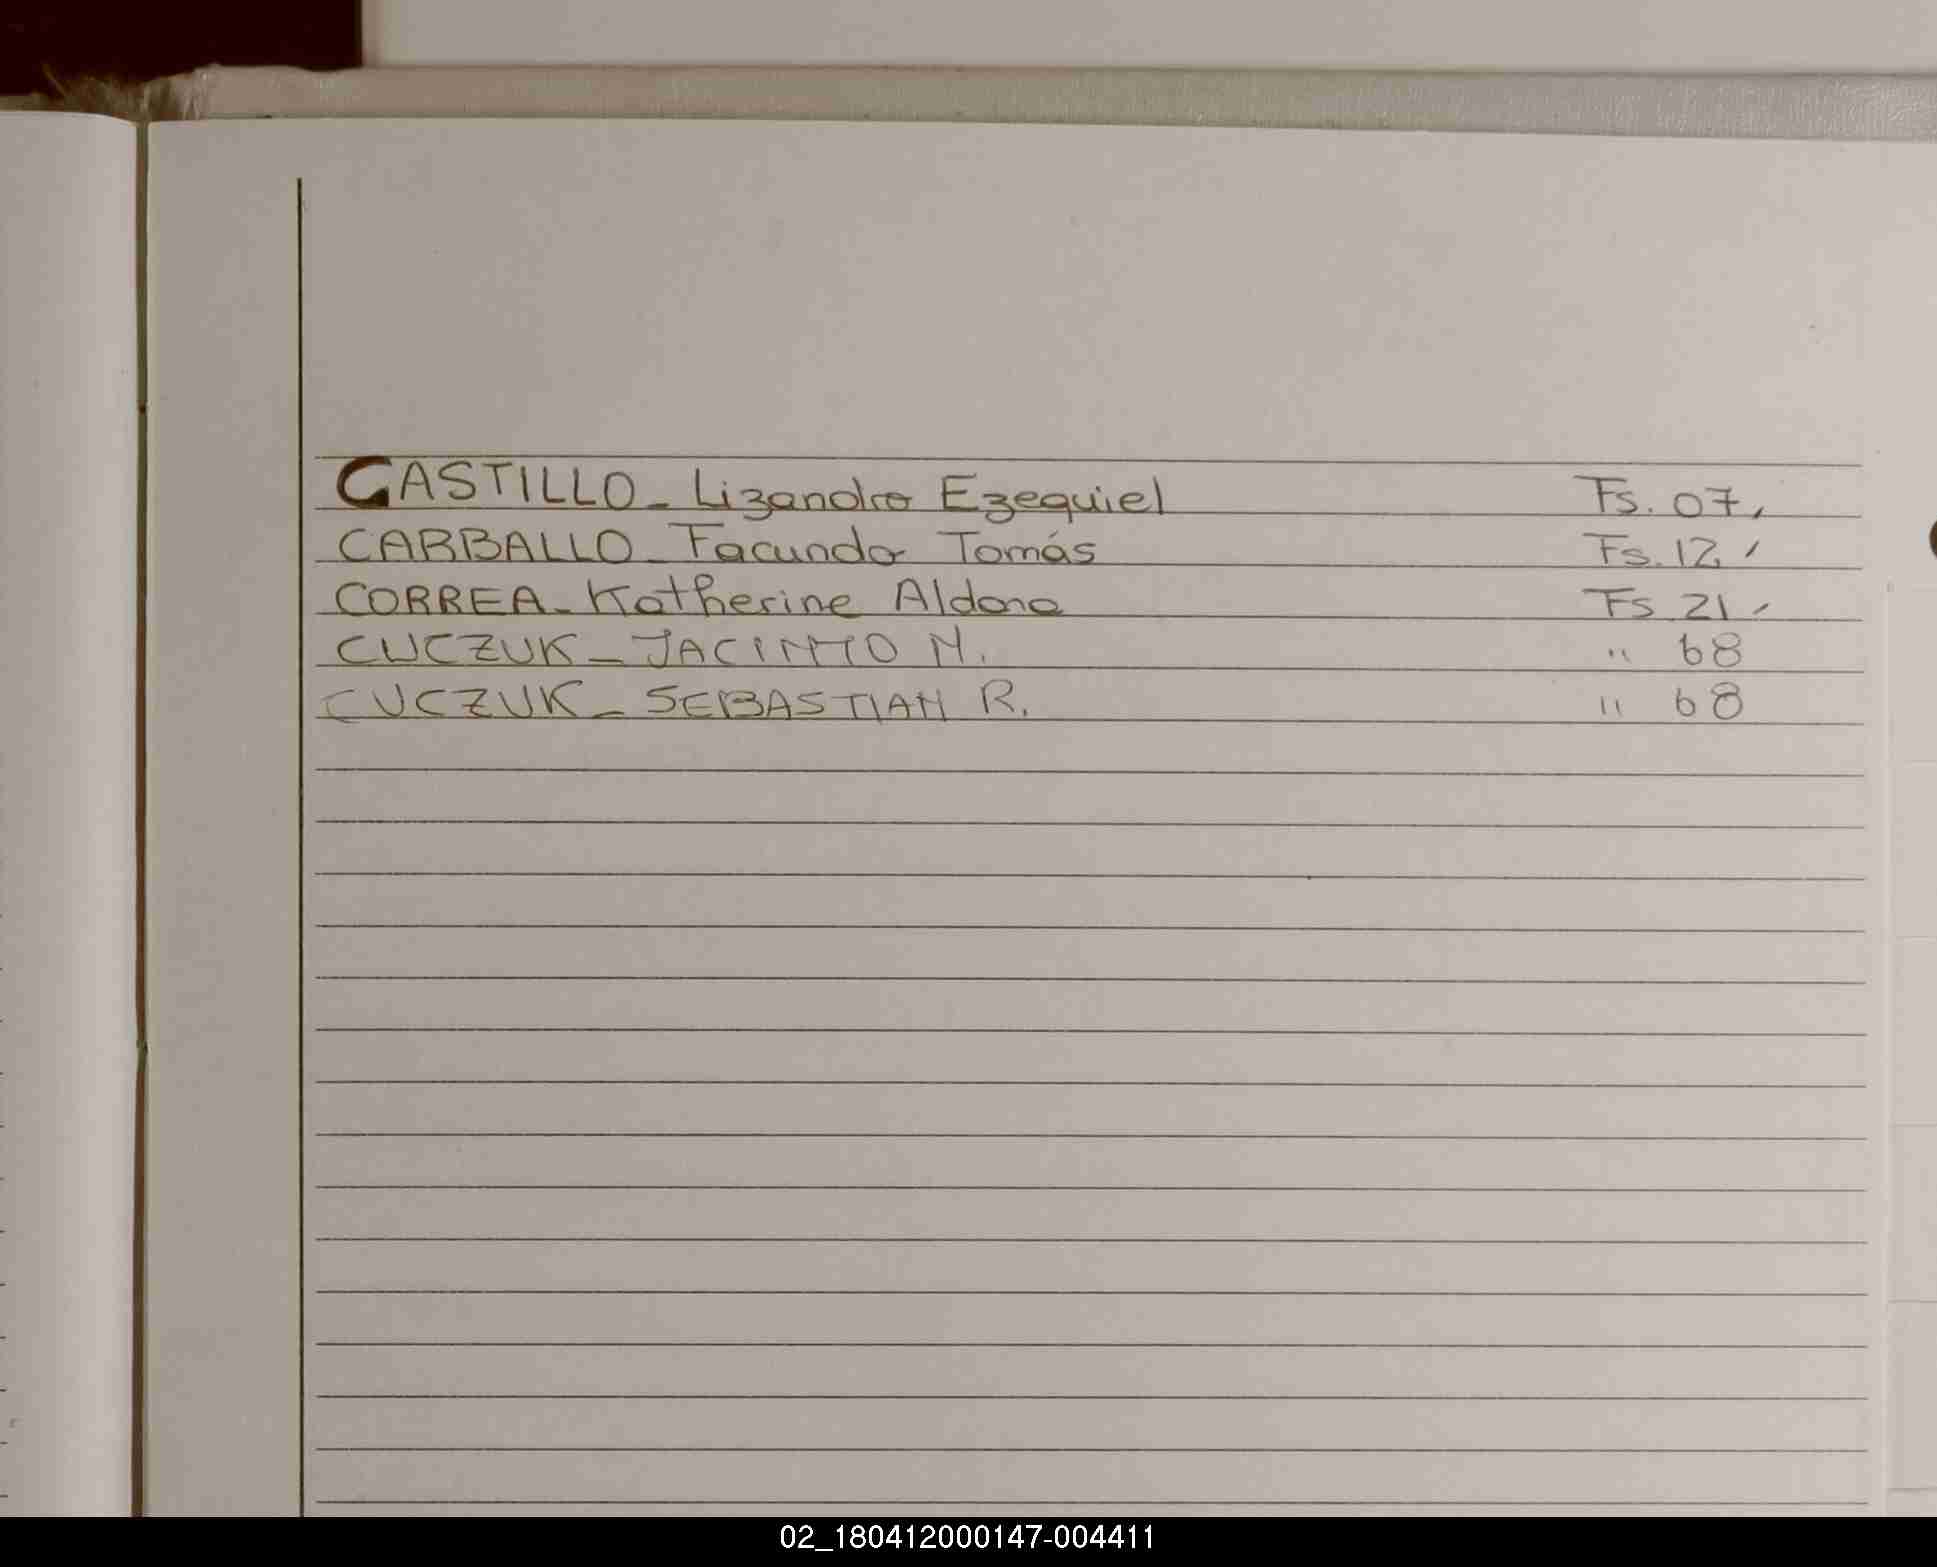 CASTILLO - Lizandro Ezequiel Fs. 07,
CARBALLO - Facundo Tomás Fs. 12 ,
CORREA - Katherine Aldana Fs 21 ,
CUCZUK - JACINTO N. " 68
CUCZUK - SEBASTIAN R. " 68
02_180412000147-004411